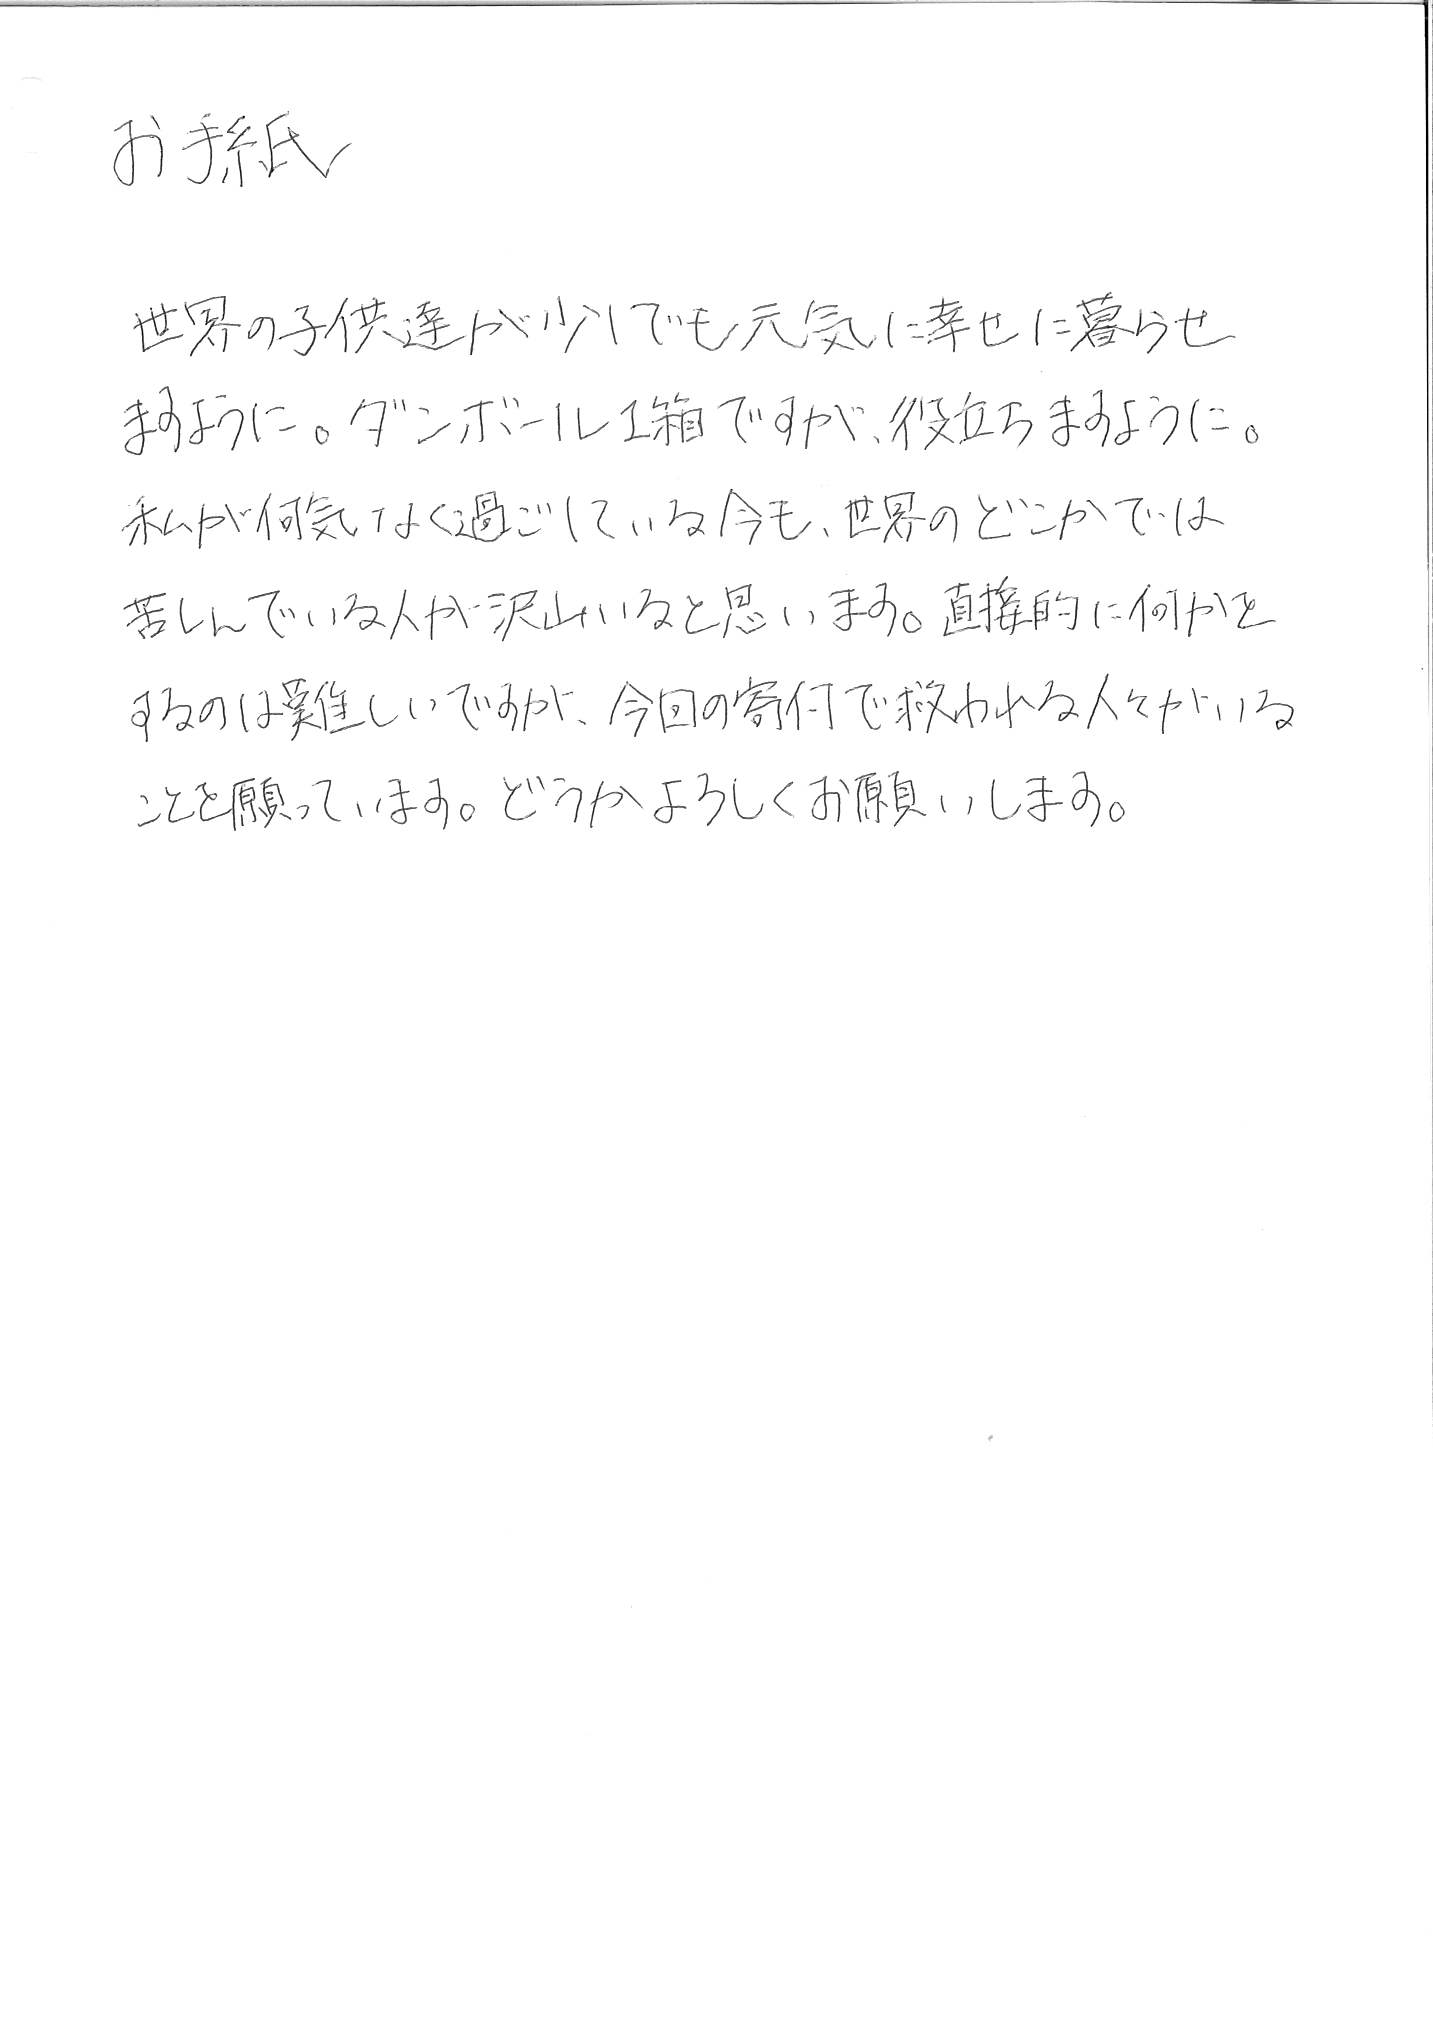 お手紙
世界の子供達が少しでも元気に幸せに暮らせ
ますように。ダンボール1箱ですが、役立ちますように。
私が何気なく過ごしている今も、世界のどこかでは
苦しんでいる人が沢山いると思います。直接的に何かを
するのは難しいですが、今回の寄付で救われる人々がいる
ことを願っています。どうかよろしくお願いします。